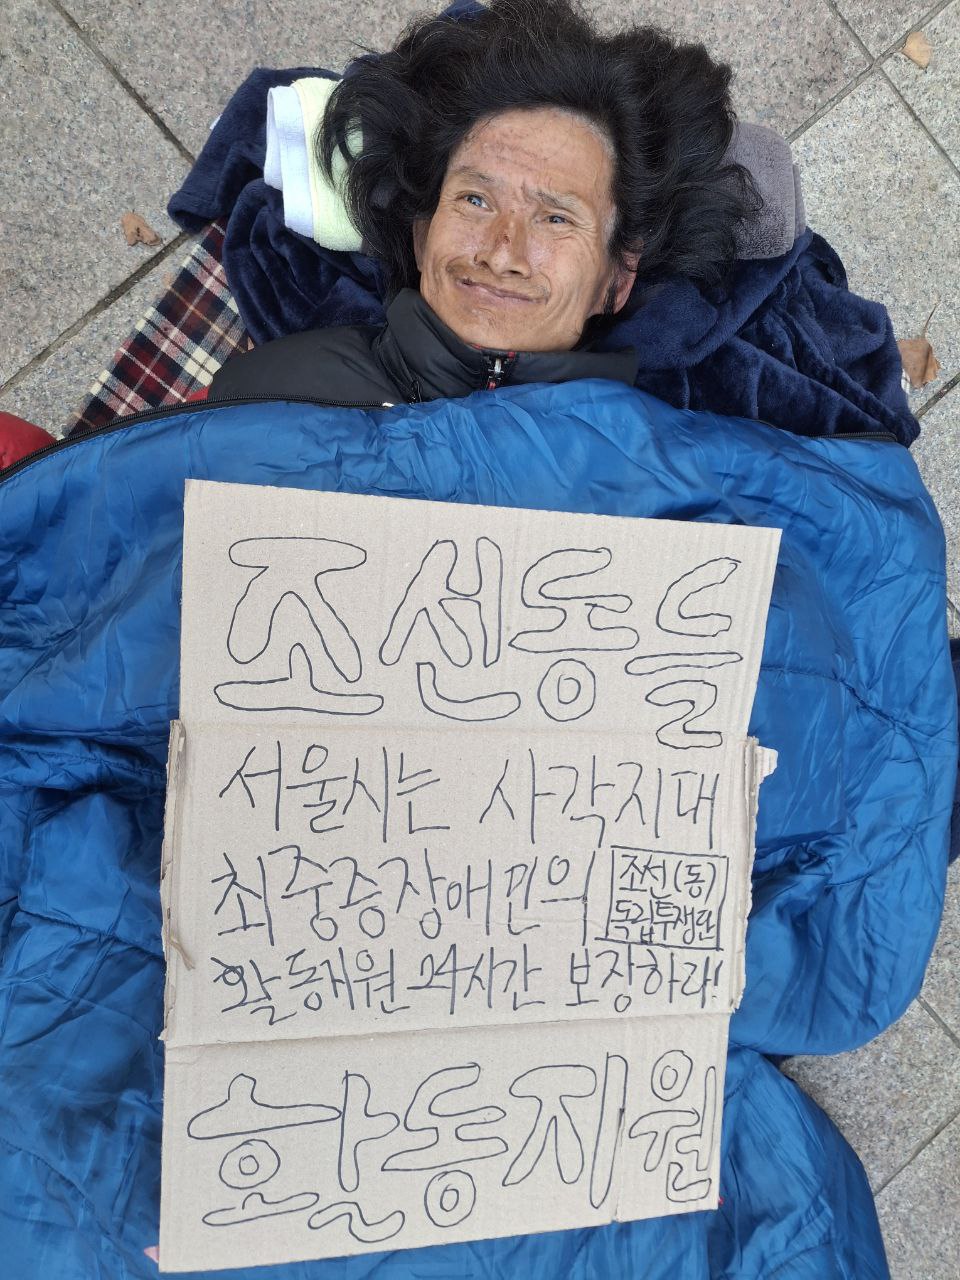 조선동들
서울시는 사각지대
최중증장애민의
조선(동)
독립투쟁단
활동지원 24시간 보장하라!
활동지원